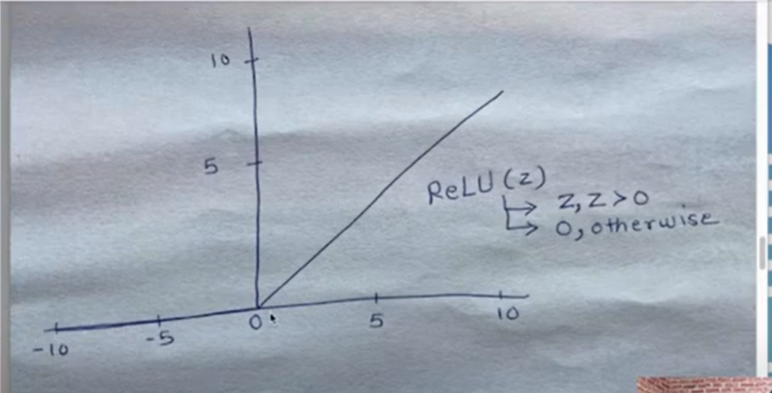 10
5
ReLU(z)
z, z>0
0, otherwise
-10 -5 0 5 10